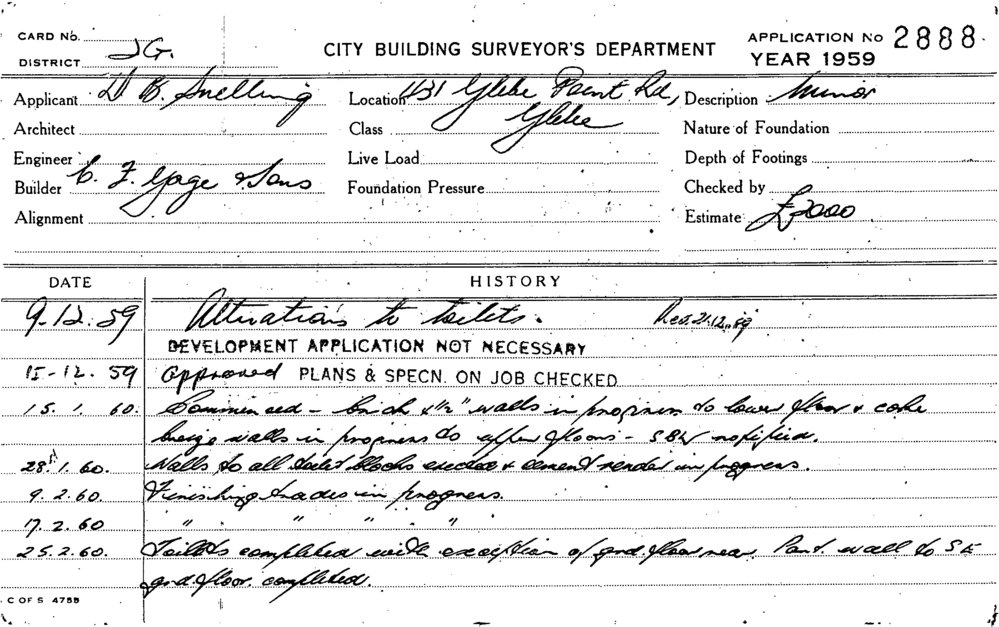 CARD No.
DISTRICT JG.
CITY BUILDING SURVEYOR'S DEPARTMENT
APPLICATION No 2888.
YEAR 1959
Applicant D B. Snelling
Location 431 Glebe Point Rd,
Glebe
Description Minor
Architect
Class
Nature of Foundation
Engineer
Live Load
Depth of Footings
Builder C. F. Gage & Sons
Foundation Pressure
Checked by
Alignment
Estimate £2000
DATE HISTORY
9.12.59 Alterations to toilets. Rec. 21.12.59
DEVELOPMENT APPLICATION NOT NECESSARY
15-12.59 approved PLANS & SPECN. ON JOB CHECKED
15.1.60. Commenced - brick 4½" walls in progress to lower floor & coke
breeze walls in progress to upper floors - notified.
28.1.60. Walls to all toilet blocks erected & cement render in progress.
9.2.60. Finishing trades in progress.
17.2.60 " " " "
25.2.60. Toilets completed with exception of grd floor rear. Part. wall to SE
grd floor completed.
C OF S 4755